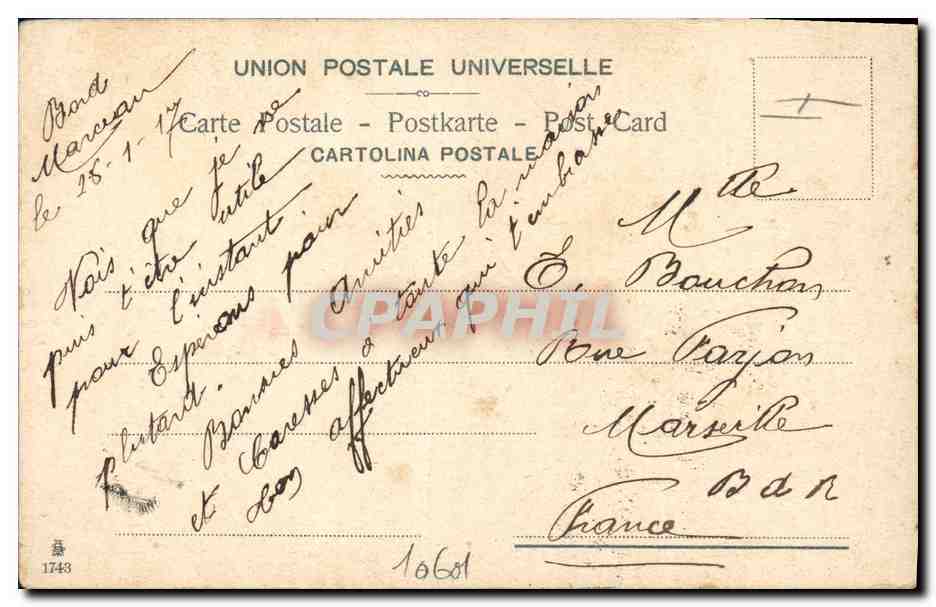 UNION POSTALE UNIVERSELLE
Carte Postale - Postkarte - Post Card
CARTOLINA POSTALE
Bord
Marceau
le 28-1-17
Vois que je ne
puis t'être utile
pour l'instant
Esperons pour
plutard.
Bonnes Amitiés
et Caresses a toute la maison
ton affectueux qui t'embrasse
Mlle
E. Bouchon
Rue Farjon
Marseille
B d R
France
1743
10601
CPAPHIL